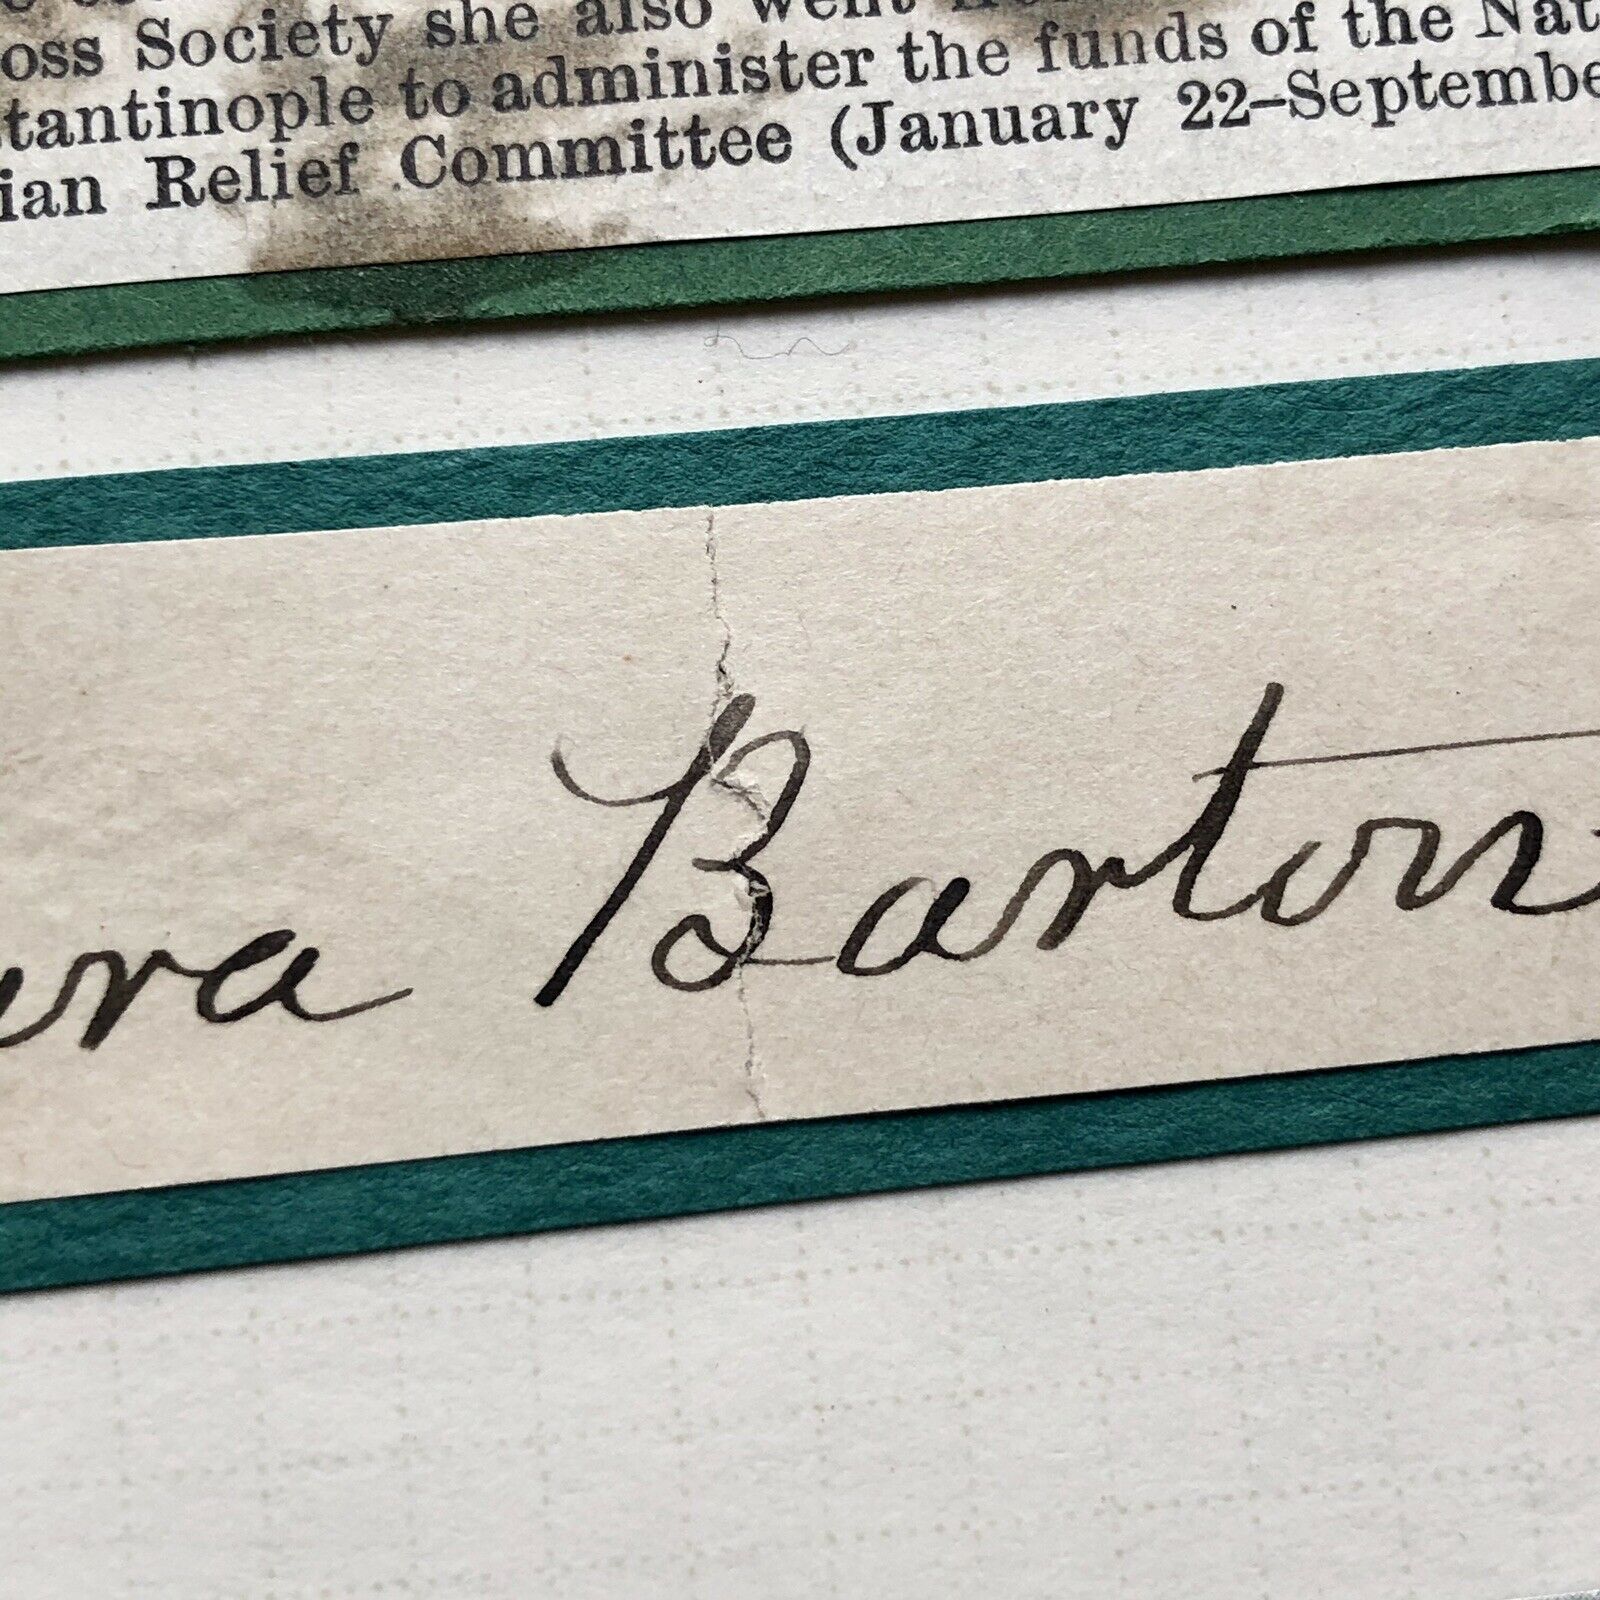 oss Society she also went
tantinople to administer the funds of the Nat
ian Relief Committee (January 22–Septembe
ara Barton